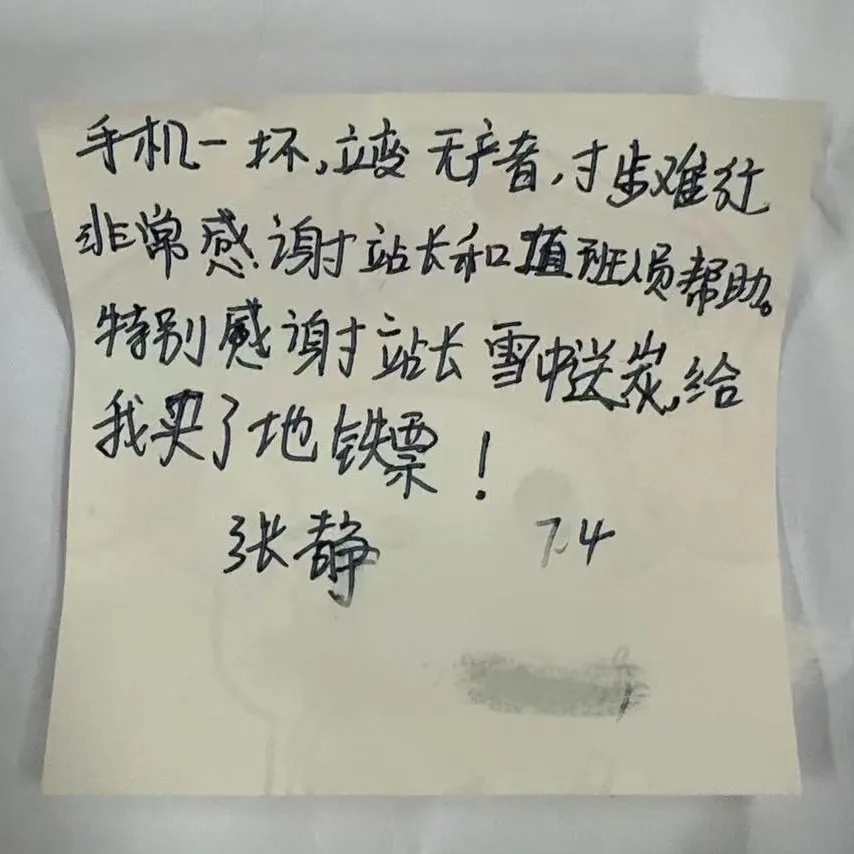 手机一坏,立变无产者,寸步难行
非常感谢站长和值班人员帮助。
特别感谢站长雪中送炭,给
我买了地铁票!
张静 7.4